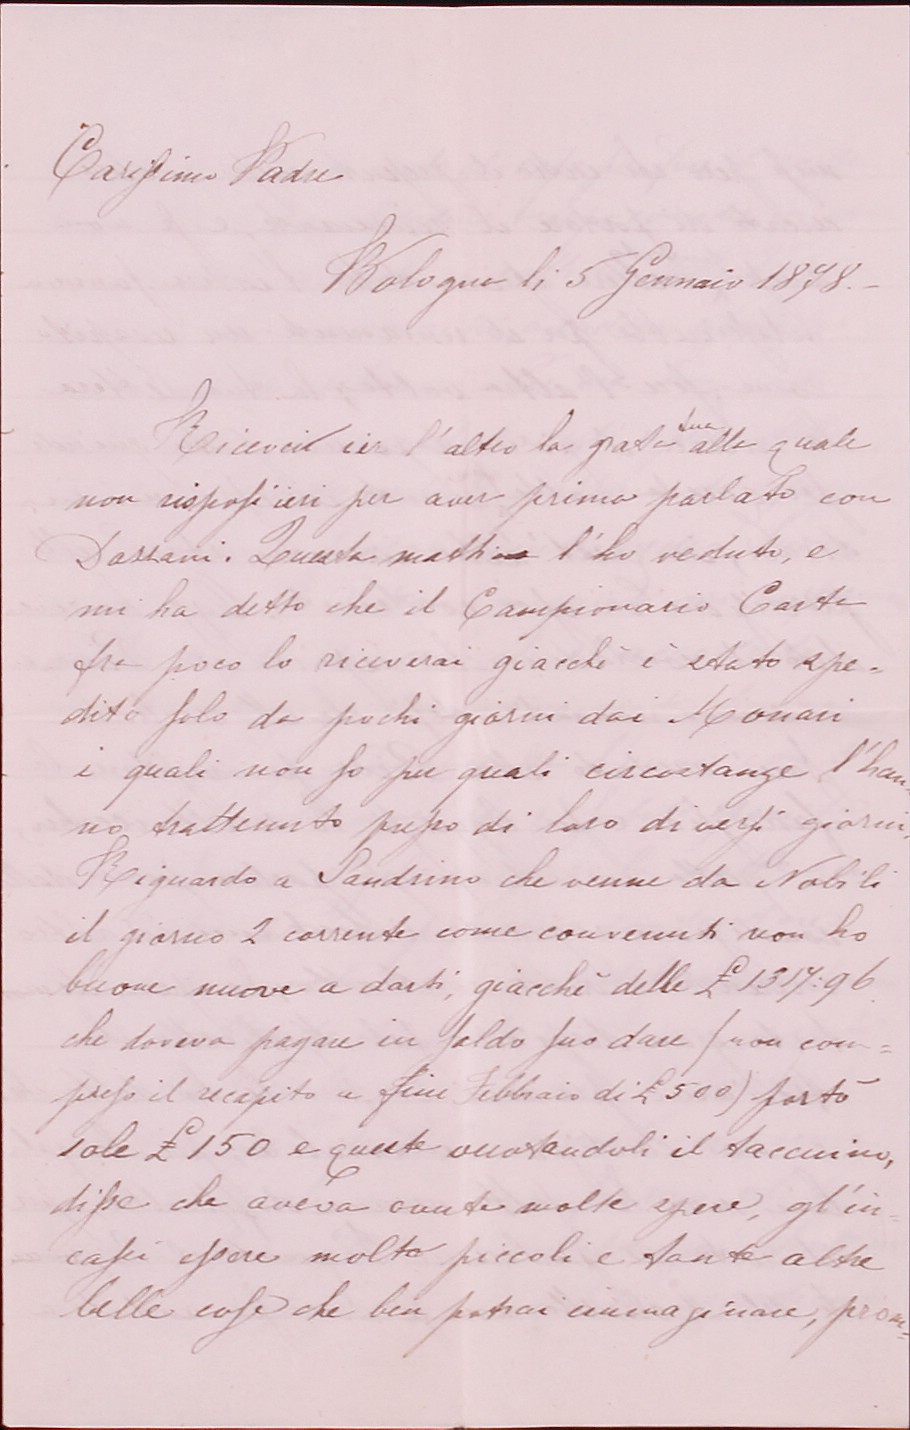 Carissimo Padre
Bologna li 5 Gennaio 1878.-
Ricevei ier l'altro la grata tua alla quale
non risposi ieri per aver prima parlato con
Dazzani. Questa mattina l'ho veduto, e
mi ha detto che il Campionario Carte
fra poco lo riceverai giacchè è stato spe-
dito solo da pochi giorni dai Monari
i quali non so per quali circostanze l'han-
no trattenuto presso di loro diversi giorni.
Riguardo a Sandrino che venne da Nobili
il giorno 2 corrente come convenuti non ho
buone nuove a darti, giacchè delle £ 1317:96
che doveva pagare in saldo suo dare (non com-
preso il recapito a fine Febbraio di £ 500) portò
sole £ 150 e queste vuotandoli il taccuino,
disse che aveva avute molte spese, gl'in-
cassi essere molto piccoli e tante altre
belle cose che ben potrai immaginare, prom-